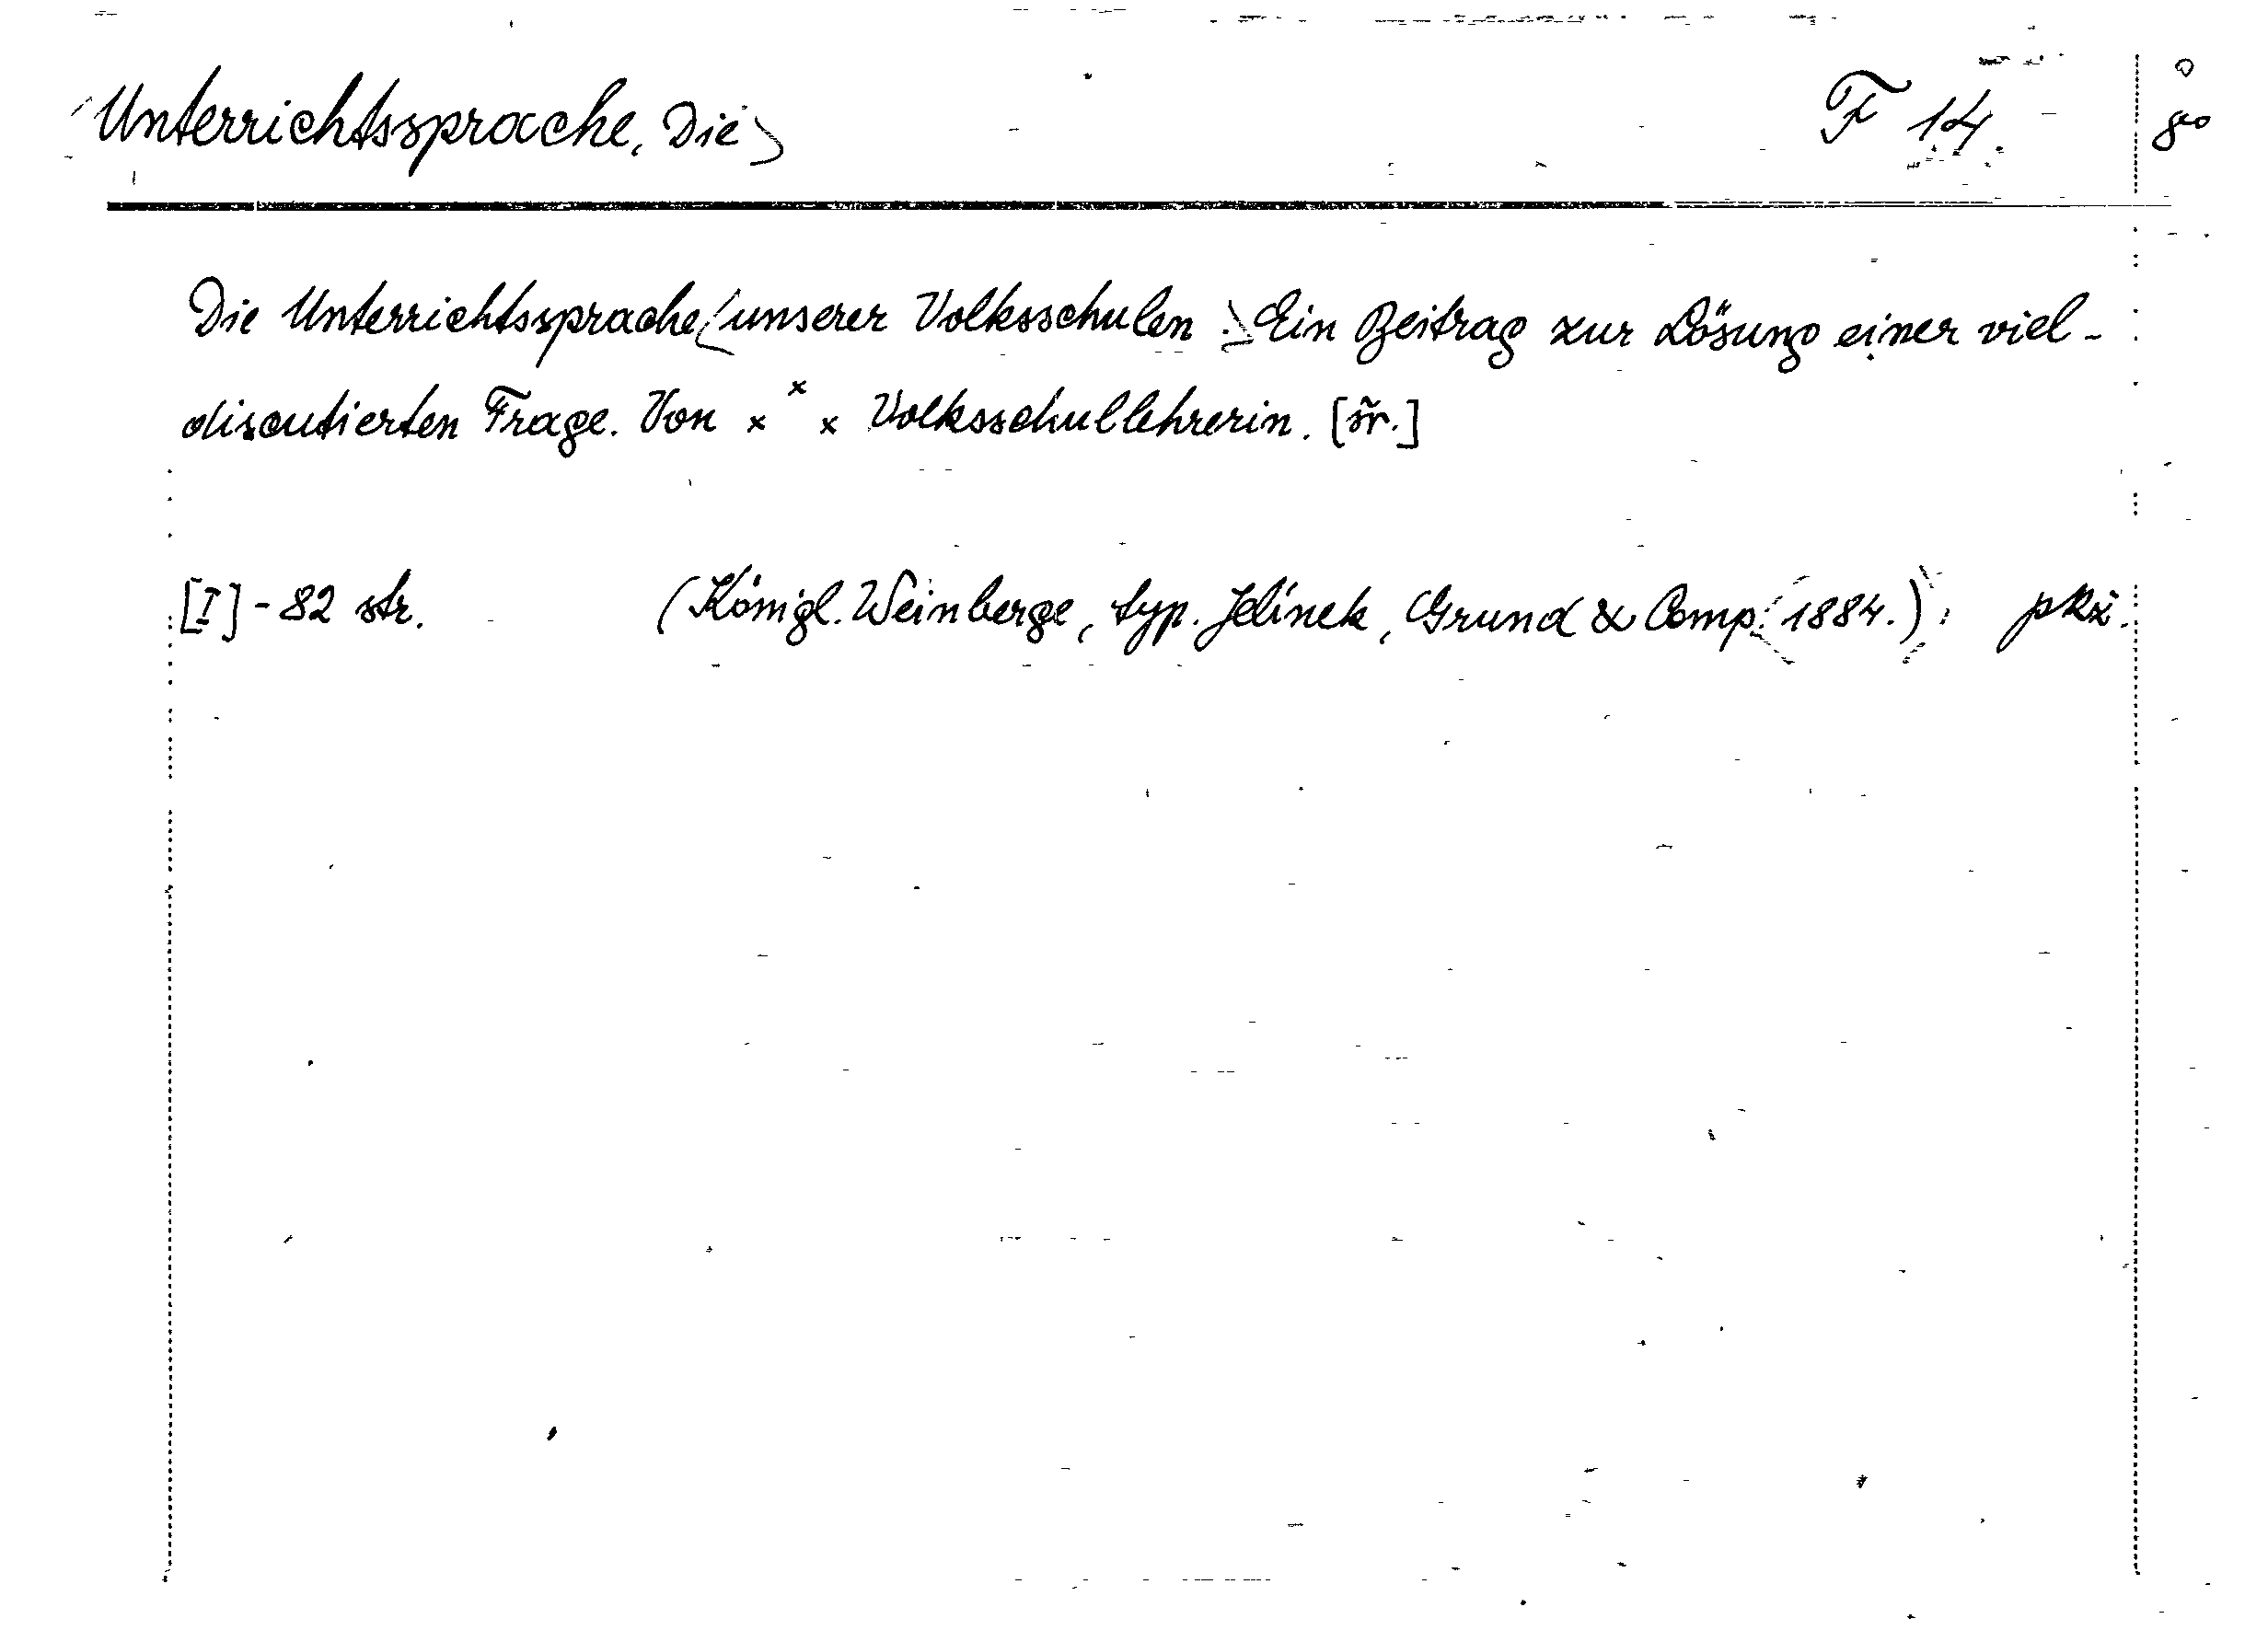 Unterrichtssprache, Die F 14.
Die Unterrichtssprache unserer Volksschulen. Ein Beitrag zur Lösung einer viel-
discutierten Frage. Von x x x Volksschullehrerin. [šr.]
[I] - 82 str. (Königl. Weinberge, typ. Jelínek, Grund & Comp. 1884.) pkž.